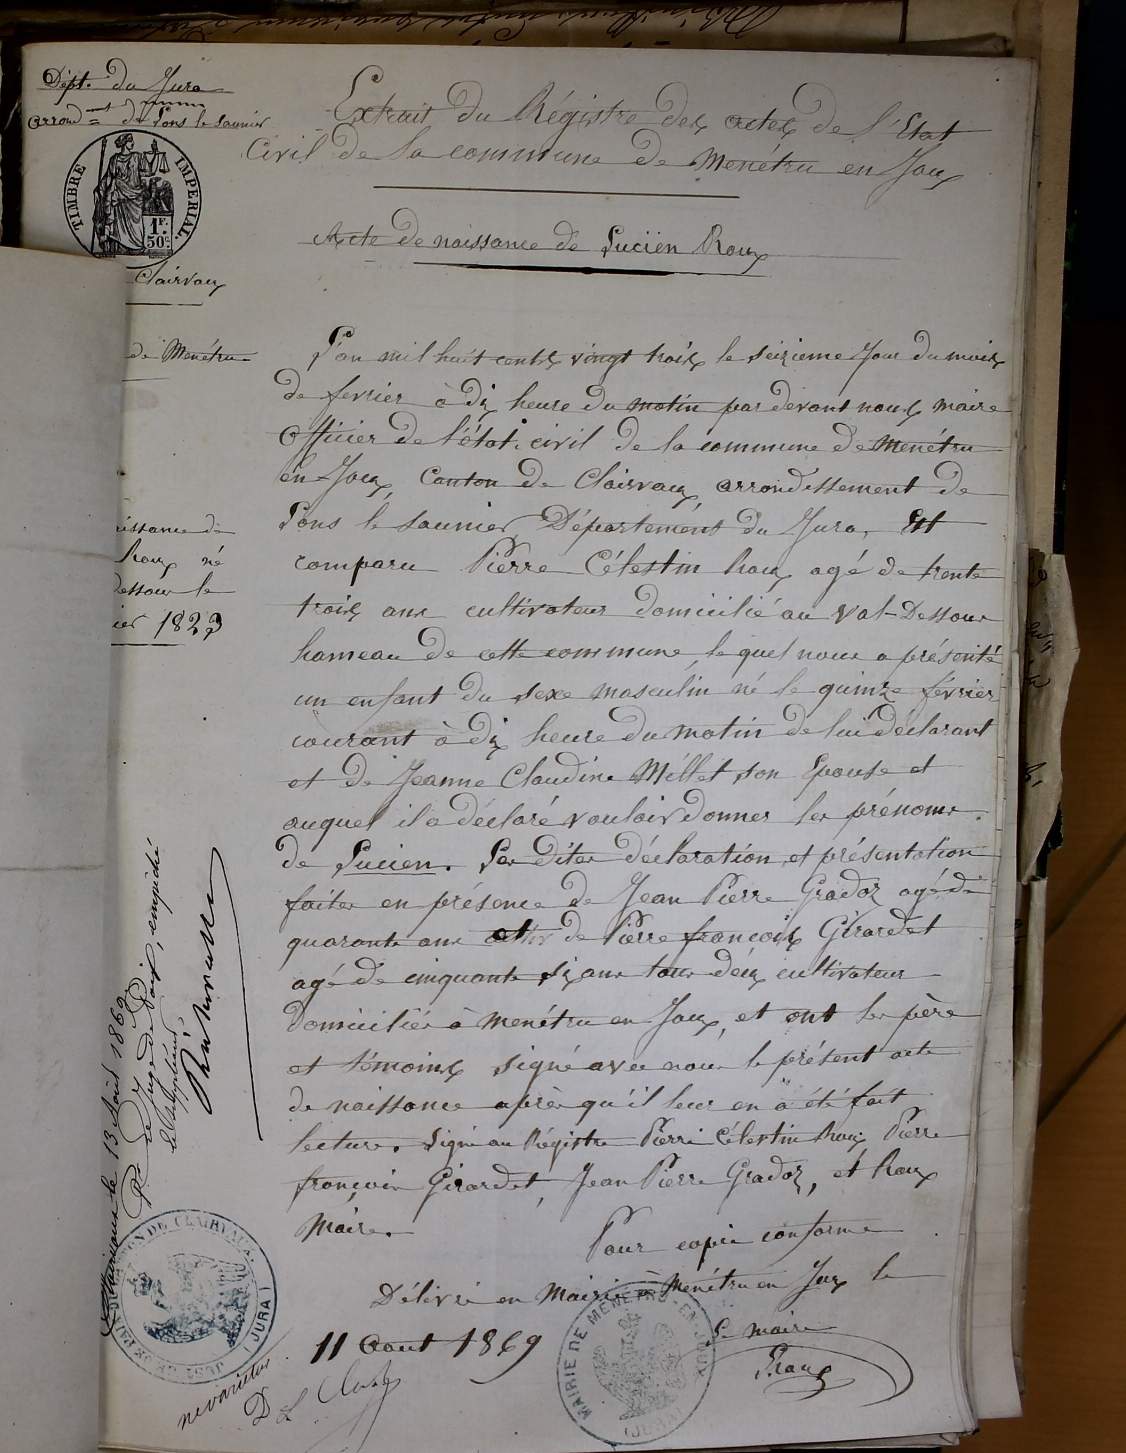 Dépt. du Jura
arrond = t de Lons le Saunier
TIMBRE IMPERIAL
1F.
50c
Clairvaux
de Menétru
aissance de
Roux né
Dessous le
ier 1823
Extrait du Régistre des actes de l'Etat
Civil de la commune de Menétru en Joux
Acte de naissance de Lucien Roux
L'an mil huit cents vingt trois le seizieme Jour du mois
de fevrier à dix heure du matin par devant nous maire
Officier de l'état civil de la commune de Menétru
en Joux, Canton de Clairvaux, arrondissement de
Lons le Saunier Département du Jura, Est
comparu Pierre Célestin Roux agé de trente
trois ans cultivateur domicilié au Val-Dessous
hameau de cette commune, le quel nous a présenté
un enfant du sexe masculin né le quinze février
courant à dix heure du matin de lui déclarant
et de Jeanne Claudine Millet son Epouse et
auquel il a déclaré vouloir donner les prénoms
de Lucien. Les dites déclaration et présentation
faites en présence de Jean Pierre Gradoz agé de
quarante ans et de Pierre françois Girardet
agé de cinquante six ans tous deux cultivateur
domiciliés à Menétru en Joux, et ont les père
et témoins signé avec nous le présent acte
de naissance après qu'il leur en a été fait
lecture. Signé au Régistre Pierre Célestin Roux Pierre
françois Girardet, Jean Pierre Gradoz, et Roux
Maire.
Pour copie conforme
Délivré en Mairie à Menétru en Joux le
11 Aout 1869
Le maire
Roux
MAIRIE DE MENETRU-EN-JOUX
(JURA)
Clairvaux le 13 Août 1869
Pr le Juge de Paix, empêché
le Suppléant,
JUSTICE DE PAIX DU CANTON DE CLAIRVAUX
(JURA)
ne varietur
D L